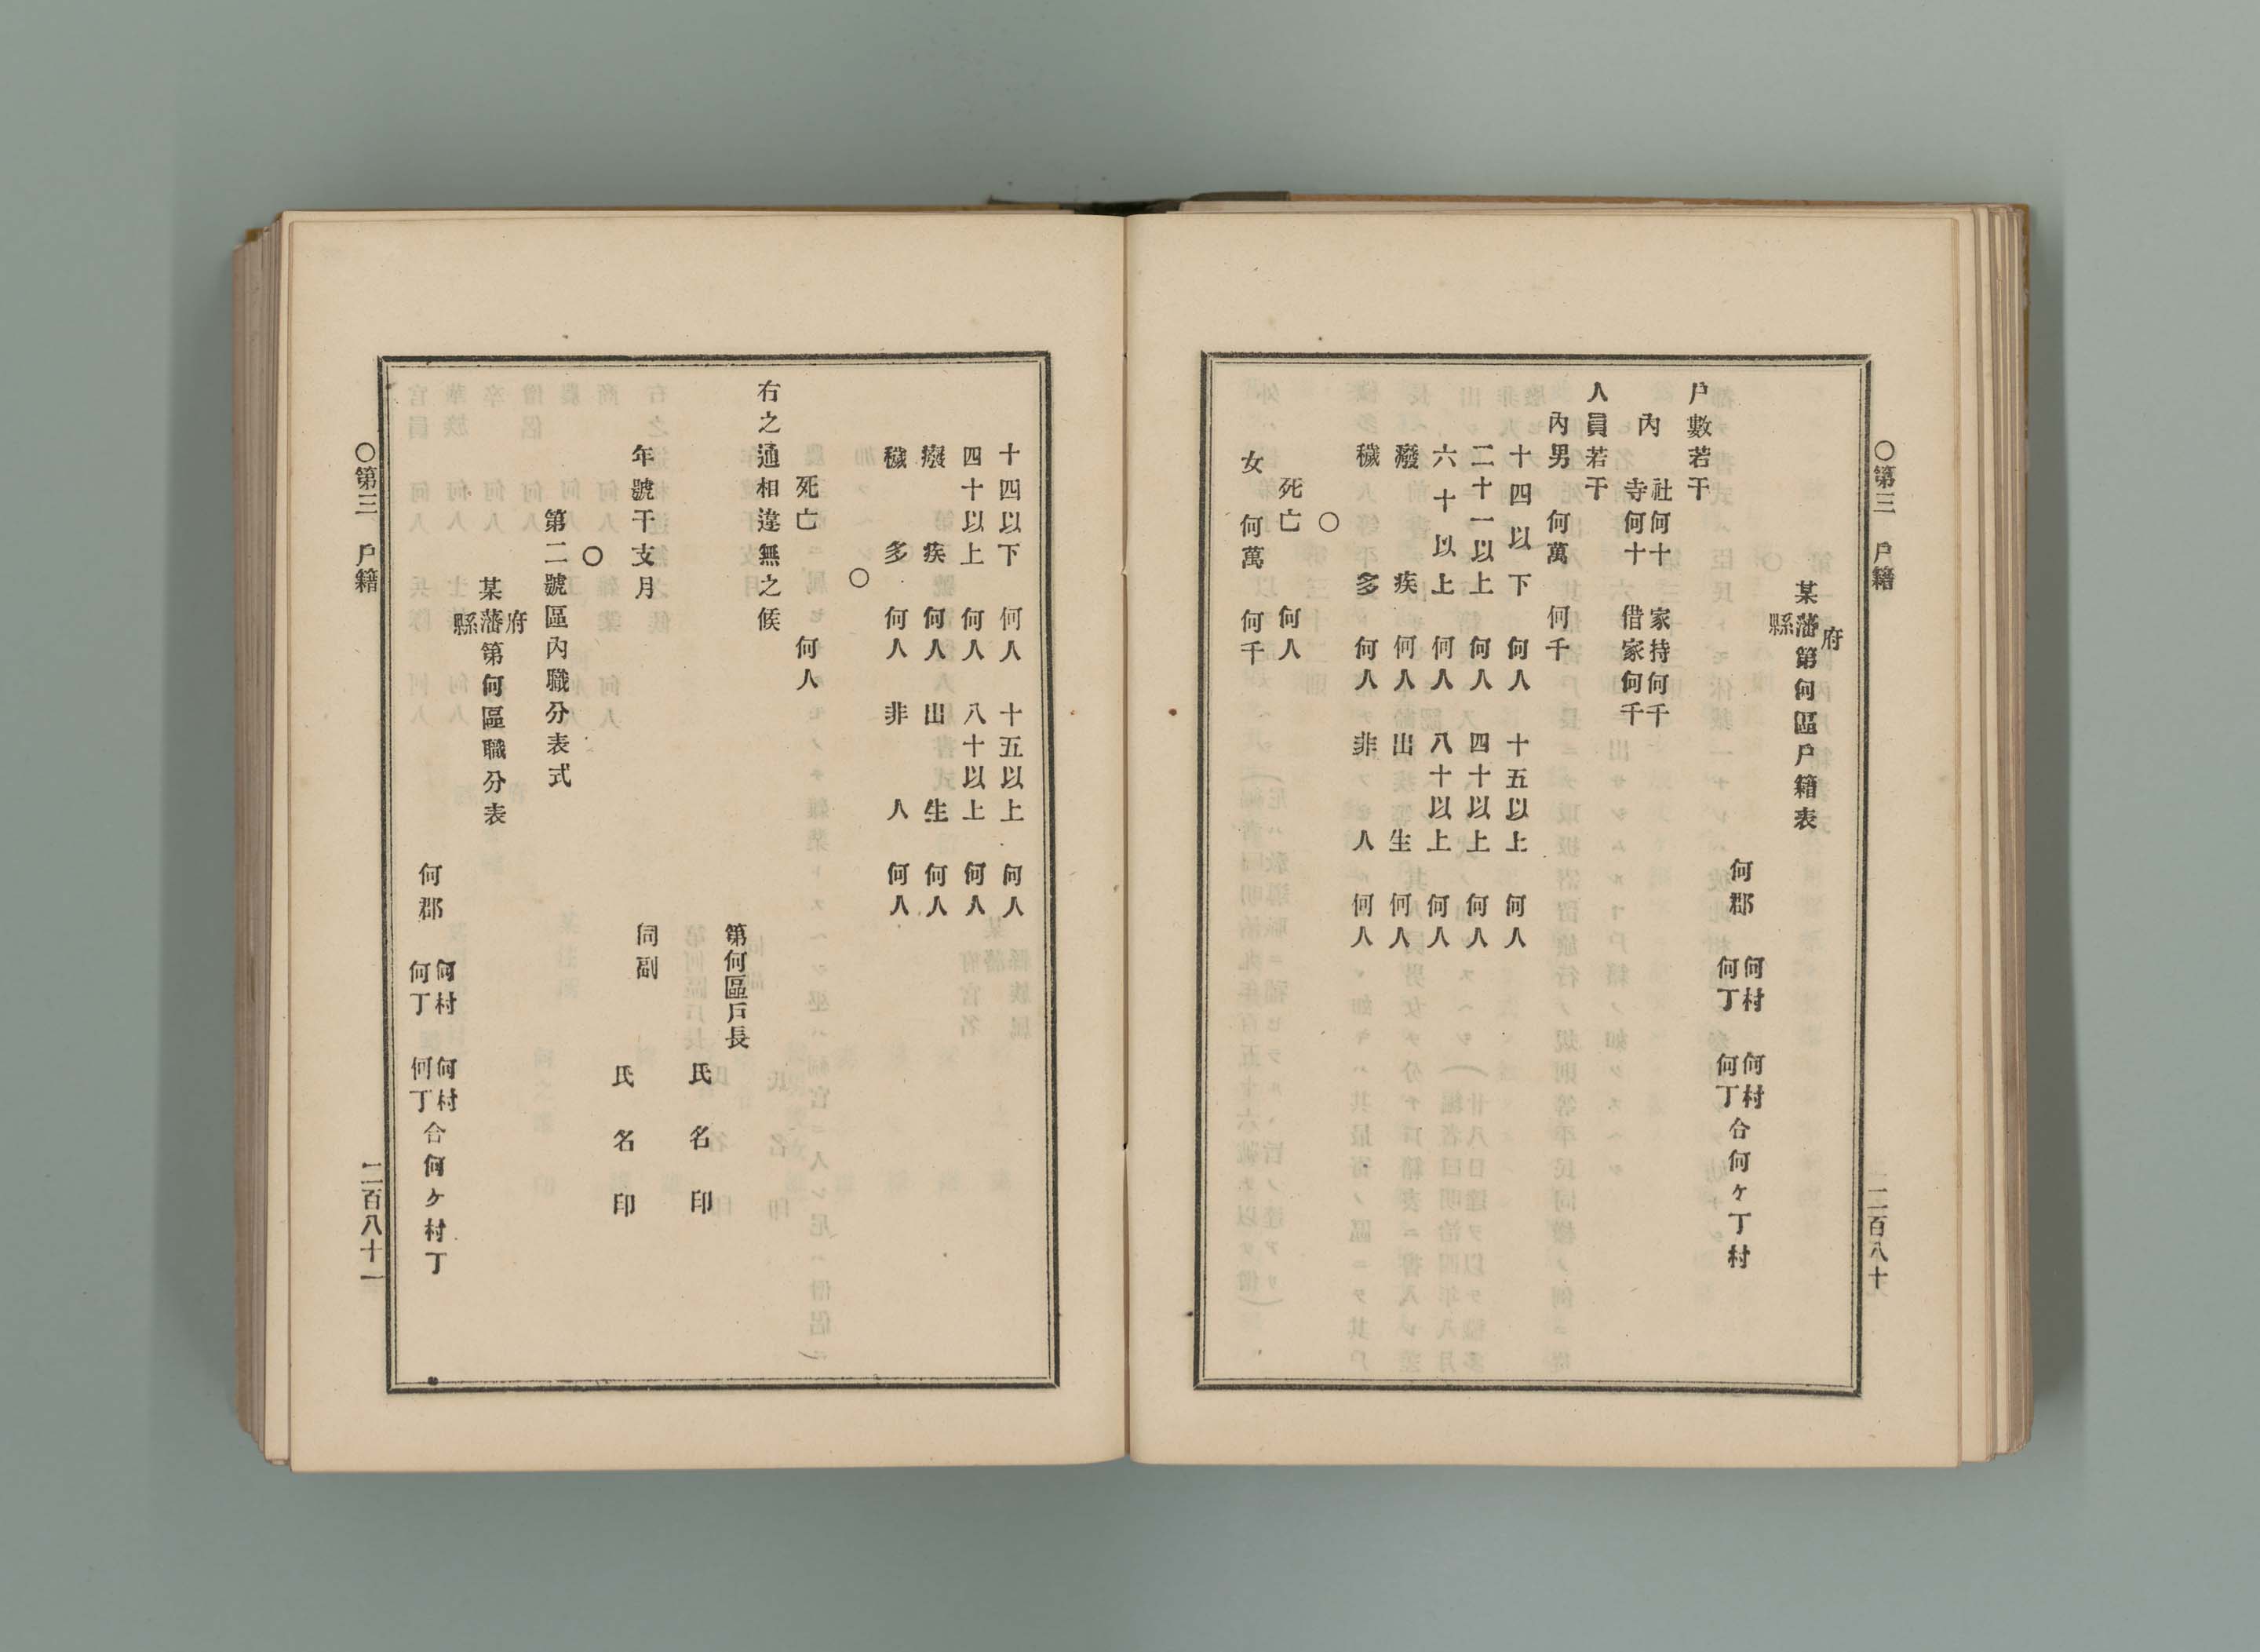 ○第三　戶籍
二百八十
府
某藩第何區戶籍表
縣
何郡　何村　何村合何ヶ丁村
何丁　何丁
戶數若干
內　社何十　家持何千
寺何十　借家何千
人員若干
內男　何萬　何千
十四以下　何人　十五以上　何人
二十一以上　何人　四十以上　何人
六十以上　何人　八十以上　何人
癈疾　何人　出生　何人
穢多　何人　非人　何人
○
死亡　何人
女　何萬　何千
十四以下　何人　十五以上　何人
四十以上　何人　八十以上　何人
癈疾　何人　出生　何人
穢多　何人　非人　何人
○
死亡　何人
右之通相違無之候
第何區戶長
氏名印
年號干支月
同副
氏名印
○
第二號區內職分表式
府
某藩第何區職分表
縣
何郡　何村　何村合何ヶ村丁
何丁　何丁
○第三　戶籍
二百八十一